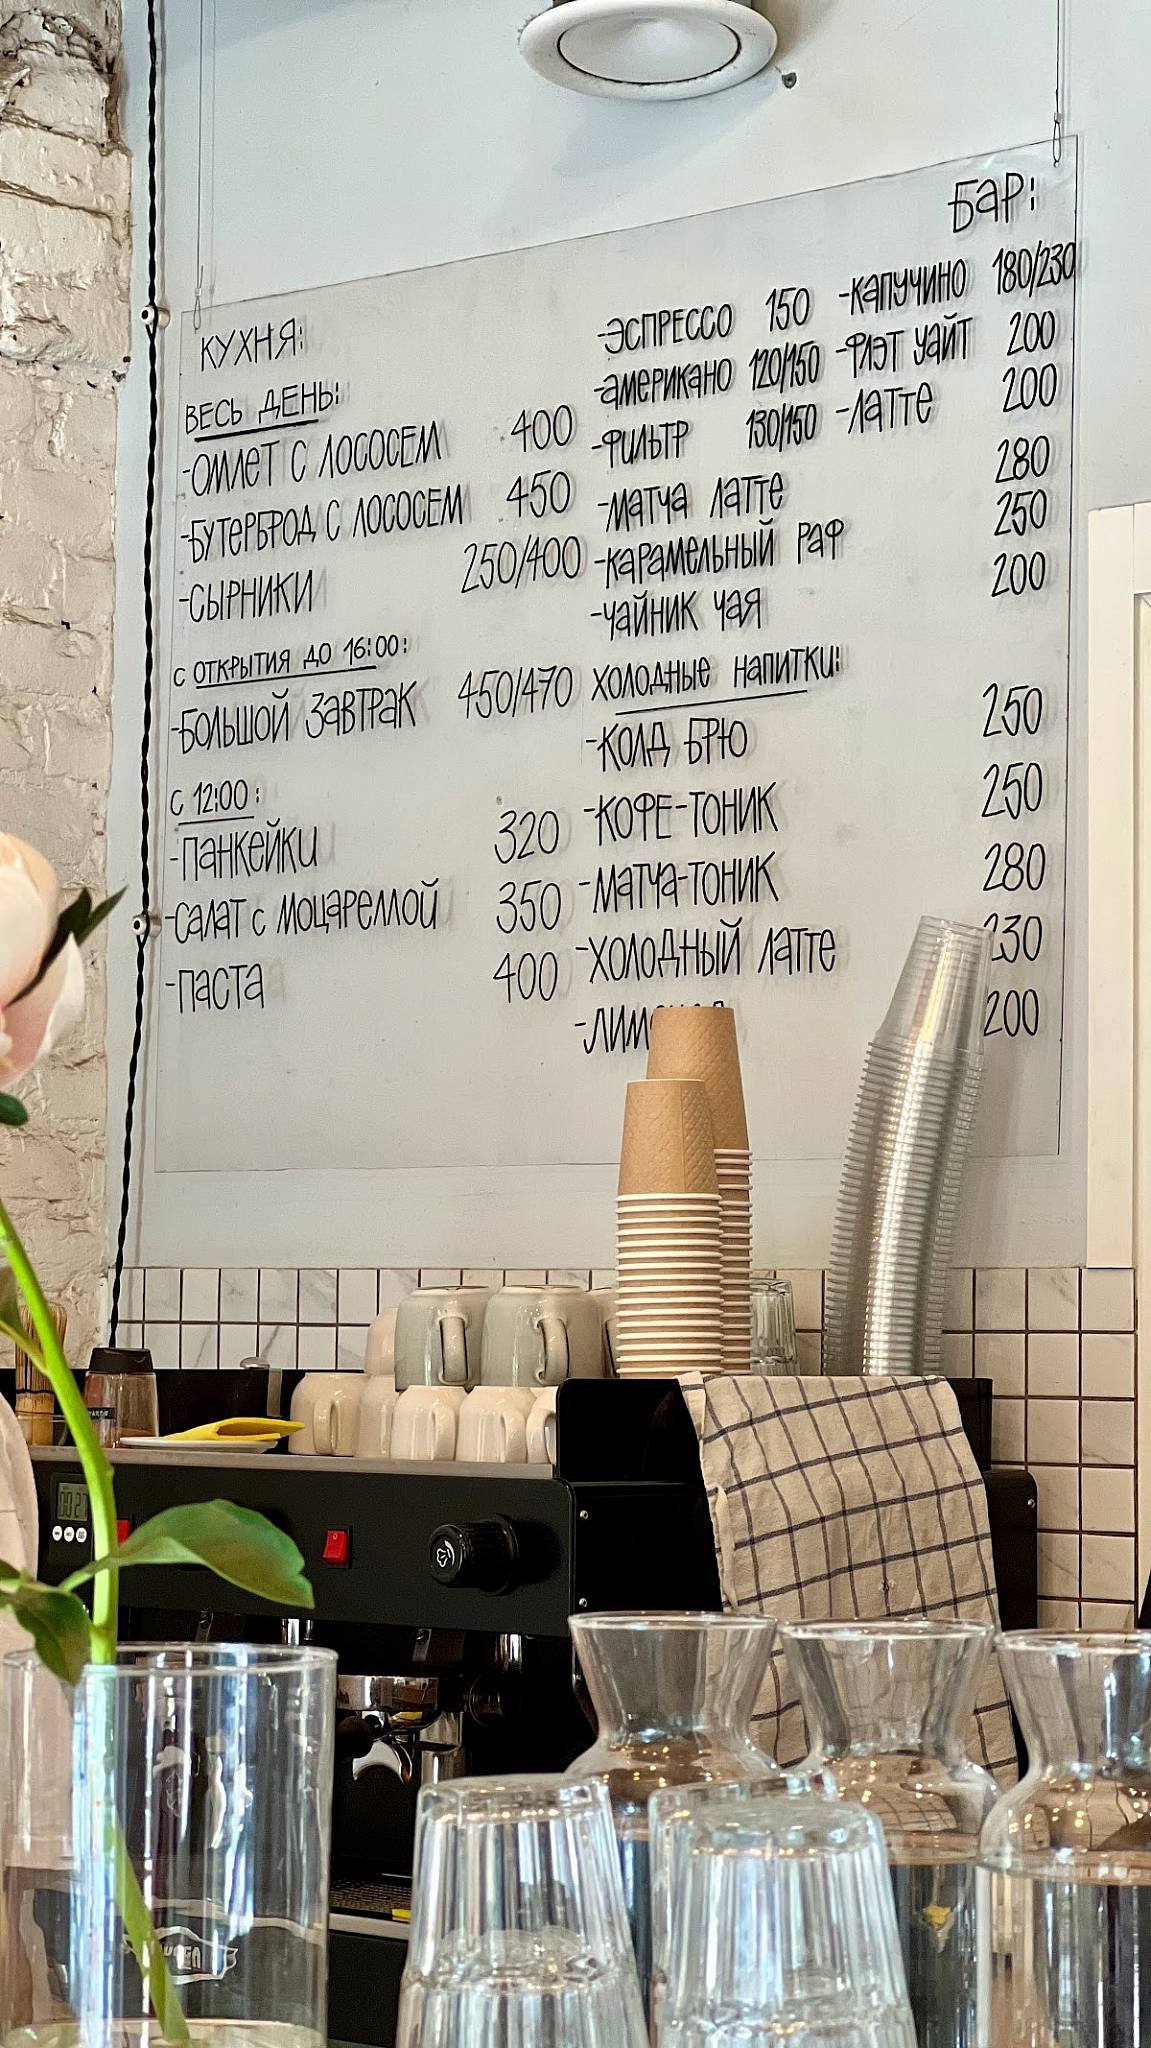 КУХНЯ:
ВЕСЬ ДЕНЬ:
-ОМЛЕТ С ЛОСОСЕМ 400
-БУТЕРБРОД С ЛОСОСЕМ 450
-СЫРНИКИ 250/400
С ОТКРЫТИЯ ДО 16:00:
-БОЛЬШОЙ ЗАВТРАК 450/470
С 12:00:
-ПАНКЕЙКИ 320
-САЛАТ С МОЦАРЕЛЛОЙ 350
-ПАСТА 400
БАР:
-ЭСПРЕССО 150 -КАПУЧИНО 180/230
-АМЕРИКАНО 120/150 -ФЛЭТ УАЙТ 200
-ФИЛЬТР 130/150 -ЛАТТЕ 200
-МАТЧА ЛАТТЕ 280
-КАРАМЕЛЬНЫЙ РАФ 250
-ЧАЙНИК ЧАЯ 200
ХОЛОДНЫЕ НАПИТКИ:
-КОЛД БРЮ 250
-КОФЕ-ТОНИК 250
-МАТЧА-ТОНИК 280
-ХОЛОДНЫЙ ЛАТТЕ 230
200